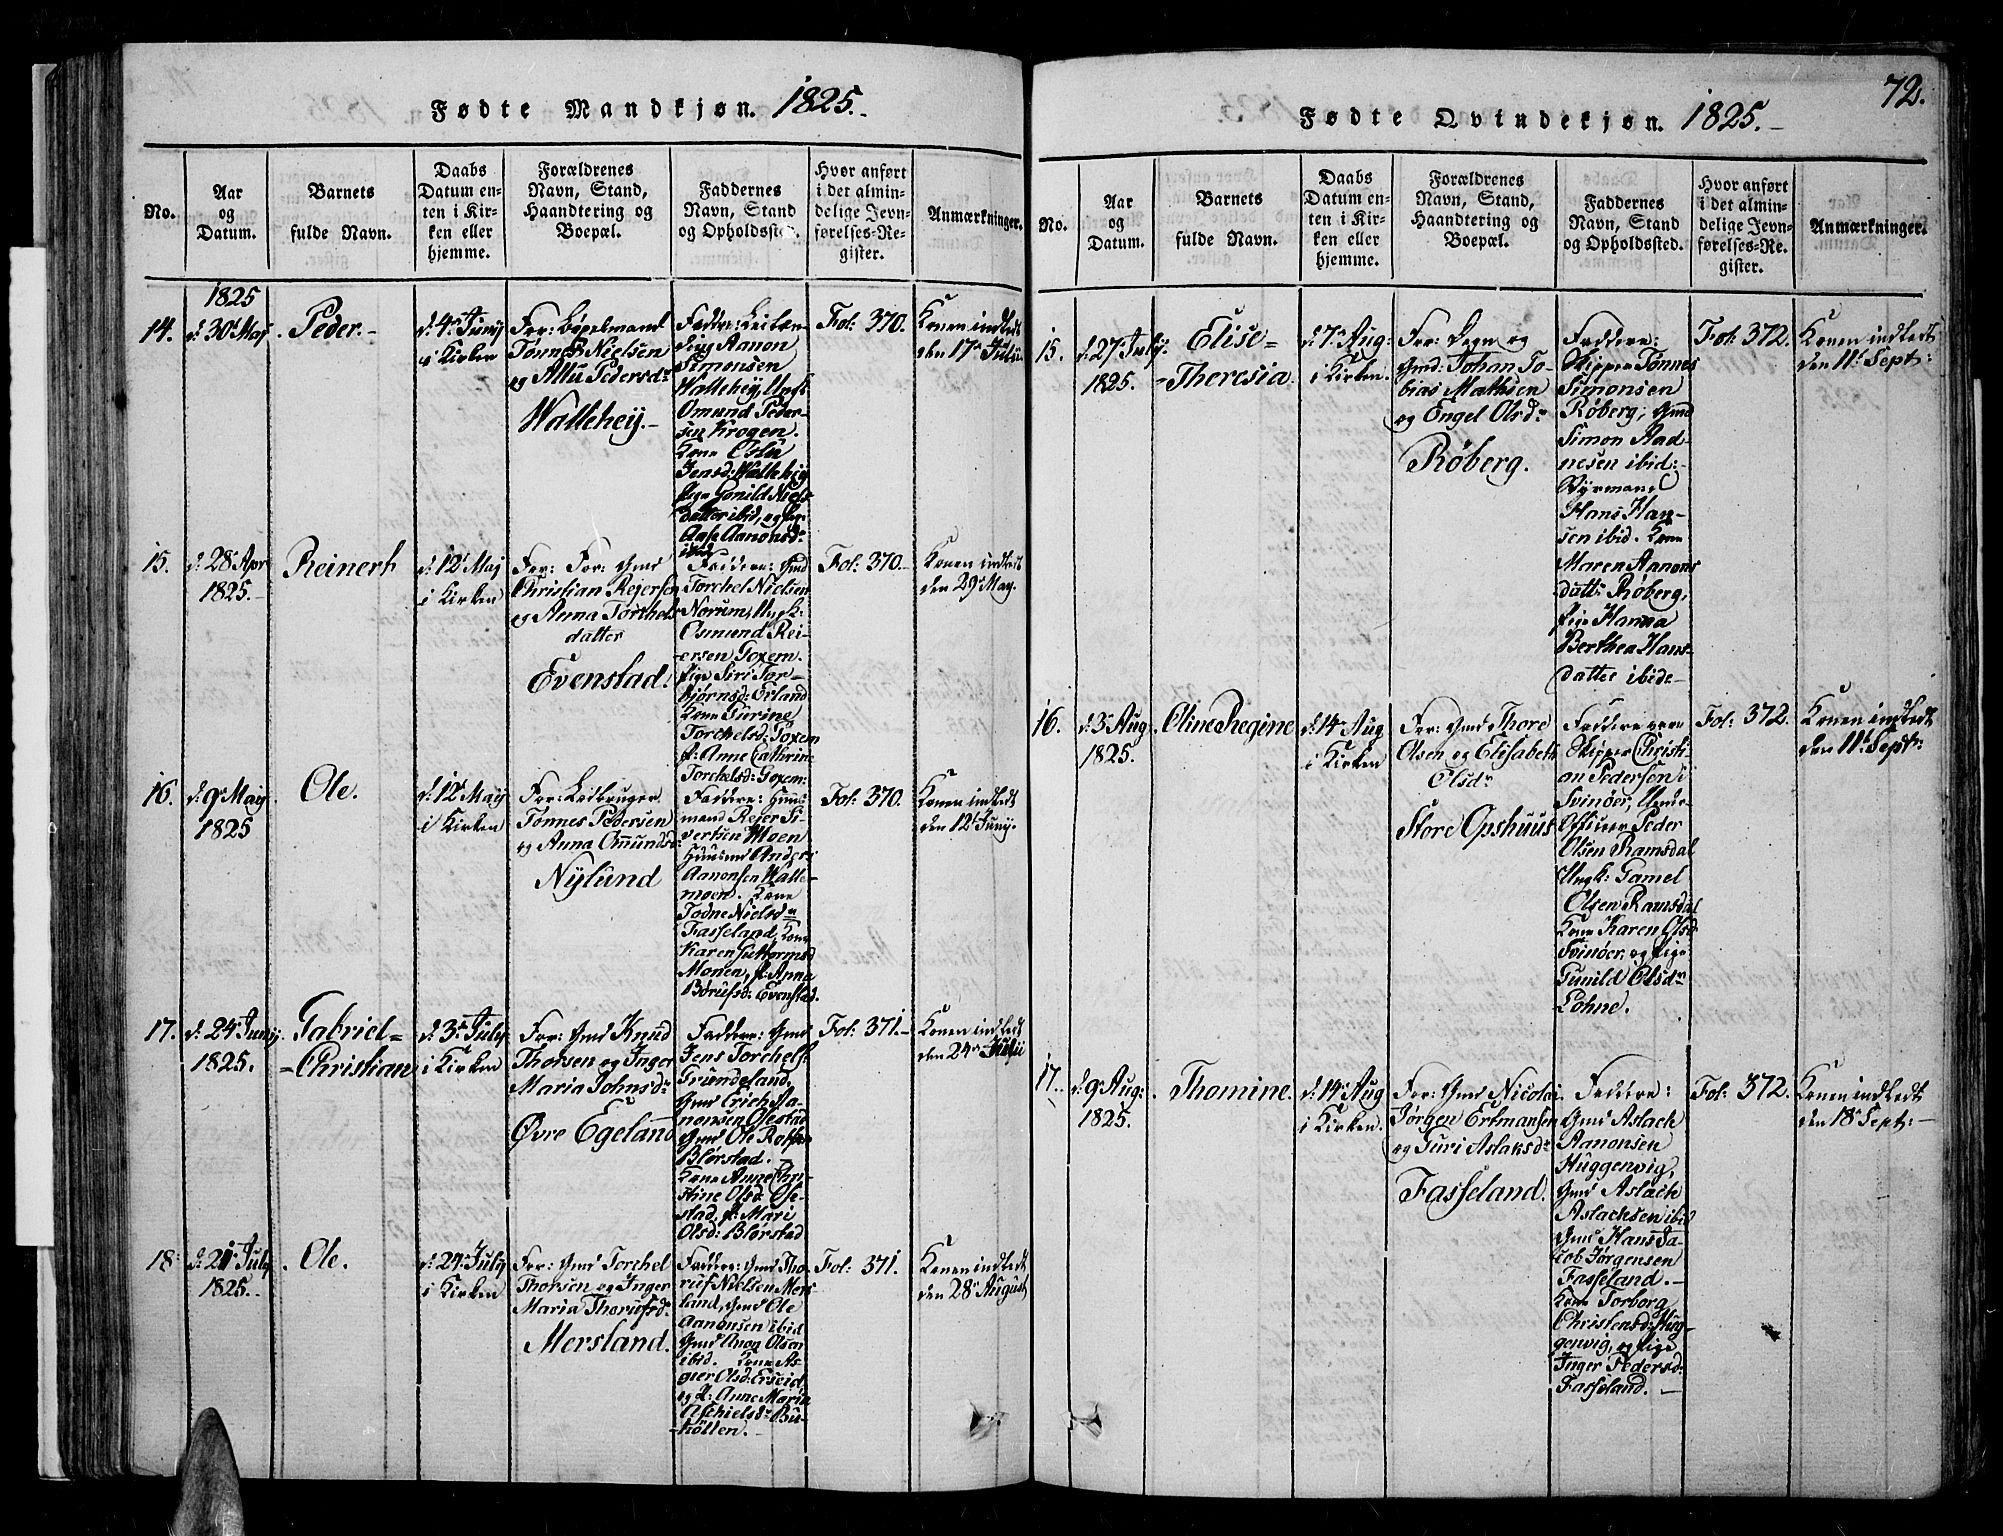 Fødte Mandkjøn. 1825.-
No.
Aar
og
Datum.
Barnets
fulde Navn.
Daabs
Datum en-
ten i Kir-
ken eller
hjemme.
Forældrenes
Navn, Stand,
Haandtering og
Boepæl.
Faddernes
Navn, Stand
og Opholdssted.
Hvor anført
i det almin-
delige Jevn-
førelses-Re-
gister.
Anmærkninger.
14.
1825
d: 30' Maj
Peder.-
d: 4' Juny
i Kirken
For:
Tønnes Nielsen
og Allu Pedersd:
Wallehey.-
Faddere:
Aanon
Simonsen
Wallehey, Ungk
Omund Peder-
sen Krogen.
Kone Oslu
Jensd: Wallehey
Pige Gonild Niels
datter ibid, og
Aase Aanonsd:
ibid
Fol: 370.
Konen indledt
den 17' July
15.
d: 28' Apr
1825.-
Reinert
d: 12' Maj
i Kirken
For: For: Gmd
Christian Rejersen
og Anna Torchels
datter
Evenstad.
Faddere: Gmd
Torchel Nielsen
Norum, Ungk:
Osmund Rei-
ersen Goxem.
Pige Siri Tor-
bjørnsd: Eiland
Kone Gurine
Torchelsd: Goxem
P: Anne Cathrine
Torchelsd: Goxem:
Fol: 370.-
Konen indledt
den 29' May.
16.
d: 9' May
1825
Ole.
d: 12' May
i Kirken
For: Leibruger
Tønnes Pedersen
og Anna Omunds
Nylund
Faddere: Huus
mand Rejer Si-
vertsen Moen
Huusmd Anders
Aanonsen Walle-
moen. Kone
Todne Nielsd:
Fasseland, Kone
Karen Guttormsd
Monen, P: Anna
Børufsd: Evenstad.
Fol: 370.
Konen indledt
den 12' Juny.
17.
d: 24' Juny
1825.
Gabriel-
-Christian
d: 3' July
i Kirken
For: Gmd Knud
Thorsen og Inger
Maria Johnsd:
Øvre Egeland
Faddere: Gmd
Jens Torchels:
Grundeland,
Gmd Erich Aa-
nonsen Øsestad
Gmd Ole
Blørstad.-
Kone Anne Chri-
stine Olsd: Øse-
stad, P: Mari
Olsd: Blørstad
Fol: 371.-
Konen indledt
den 24' Julii
18.
d: 21' July
1825.-
Ole.
d: 24' July
i Kirken
For: Gmd Torchel
Thorsen og Inger
Maria Thorufsd:
Mersland.
Faddere: Gmd Tho-
ruf Nielsen Mers
land, Gmd Ole
Aanonsen ibid
Gmd Anon Olsen
ibid. Kone As-
gier Olsd: Erseid
og P: Anne Maria
Aschielsd: Bu-
-kollen.-
Fol: 371.
Konen indledt
den 28' August
72.
Fødte Qvindekjøn. 1825.-
No.
Aar
og
Datum.
Barnets
fulde Navn.
Daabs
Datum en-
ten i Kir-
ken eller
hjemme.
Forældrenes
Navn, Stand,
Haandtering og
Boepæl.
Faddernes
Navn, Stand
og Opholdssted.
Hvor anført
i det almin-
delige Jevn-
førelses-Re-
gister.
Anmærkninger.
15.
d: 27' July
1825.
Elise-
-Theresia.
d: 7' Aug:
i Kirken.
For: Degn og
Gmd: Johan To-
bias Mathsen
og Engel Olsd:
Røberg.
Faddere:
Skipper Tønnes
Simonsen
Røberg, Gmd
Simon Aad-
nesen ibid:-
Styrmand
Hans Han-
sen ibid. Kone
Maren Annons
datt: Røberg,
Pige Hanna
Berthea Hans-
datter ibide-
Fol: 372.
Konen indledt
den 11' Sept:
16.
d: 3' Aug
1825.
Oline Regine
d: 14' Aug
i Kirken
For: Gmd Thore
Olsen og Elisabeth
Olsd:
Store Opshuus
Faddere vare
Skipper Christi-
an Pedersen i
Svinøer, Under
Officeer Peder
Olsen Ramsdal
Ungk: Gamel
Olsen Ramsdal
Kone Karen Olsd
Svinøer, og Pige
Gunild Olsd:
Lohne.
Fol: 372.
Konen indledt
den 11' Sept:
17.
d: 9' Aug:
1825.
Thomine.
d: 14' Aug
i Kirken.
For: Gmd Nicolai
Jørgen Ertmansen
og Guri Aslaksd:
Fasseland.
Faddere:
Gmd Aslach
Aanonsen
Huggenvig,
Gmd Aslach
Aslachsen ibid
Gmd Hans Ja-
cob Jørgensen
Fasseland.-
Kone Torborg
Christensd: Hug-
genvig, og Pige
Inger Pedersd:
Fasseland.-
Fol: 372.
Konen indledt
den 18' Sept:-